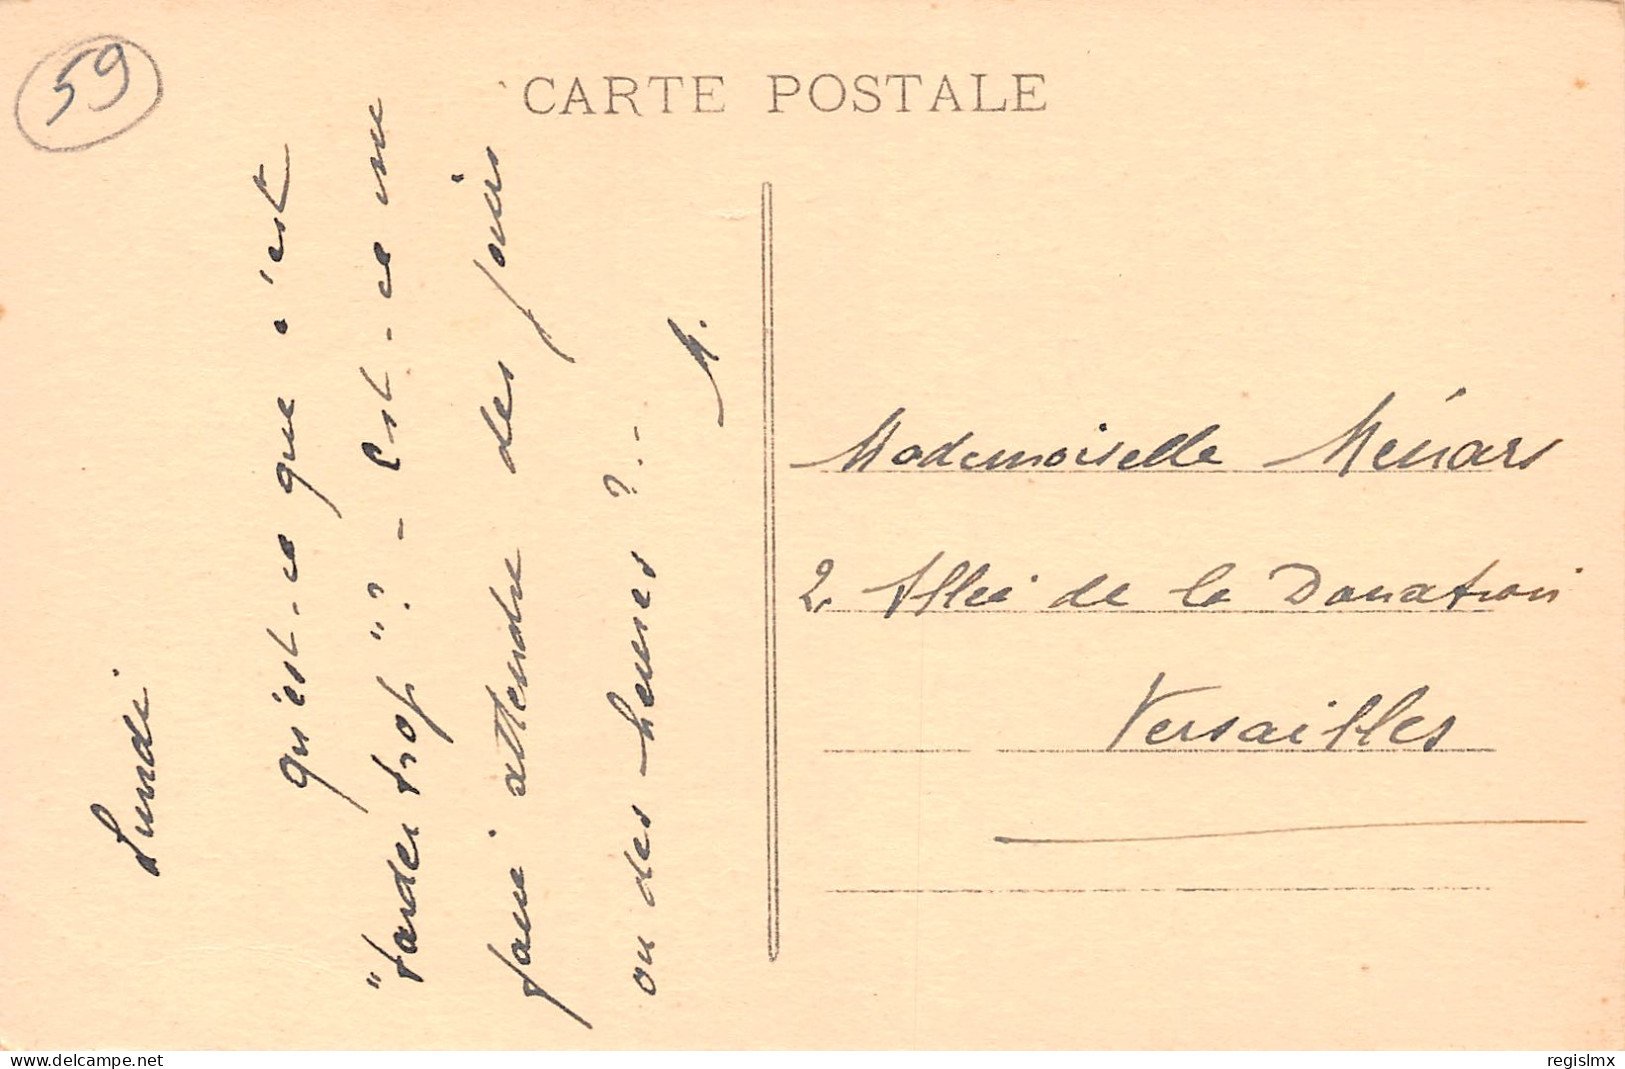 59
CARTE POSTALE
Lundi
qu'est-ce que c'est
"tarder trop"? - Est-ce me
faire attendre des jours
ou des heures ? . -
M.
Mademoiselle
2, Allée de la Donation
Versailles
www.delcampe.net
regislmx